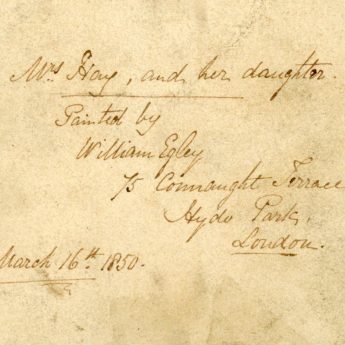 Mrs Hay, and her daughter.
Painted by
William Egley
75 Connaught Terrace
Hyde Park.
London.
March 16th 1850.